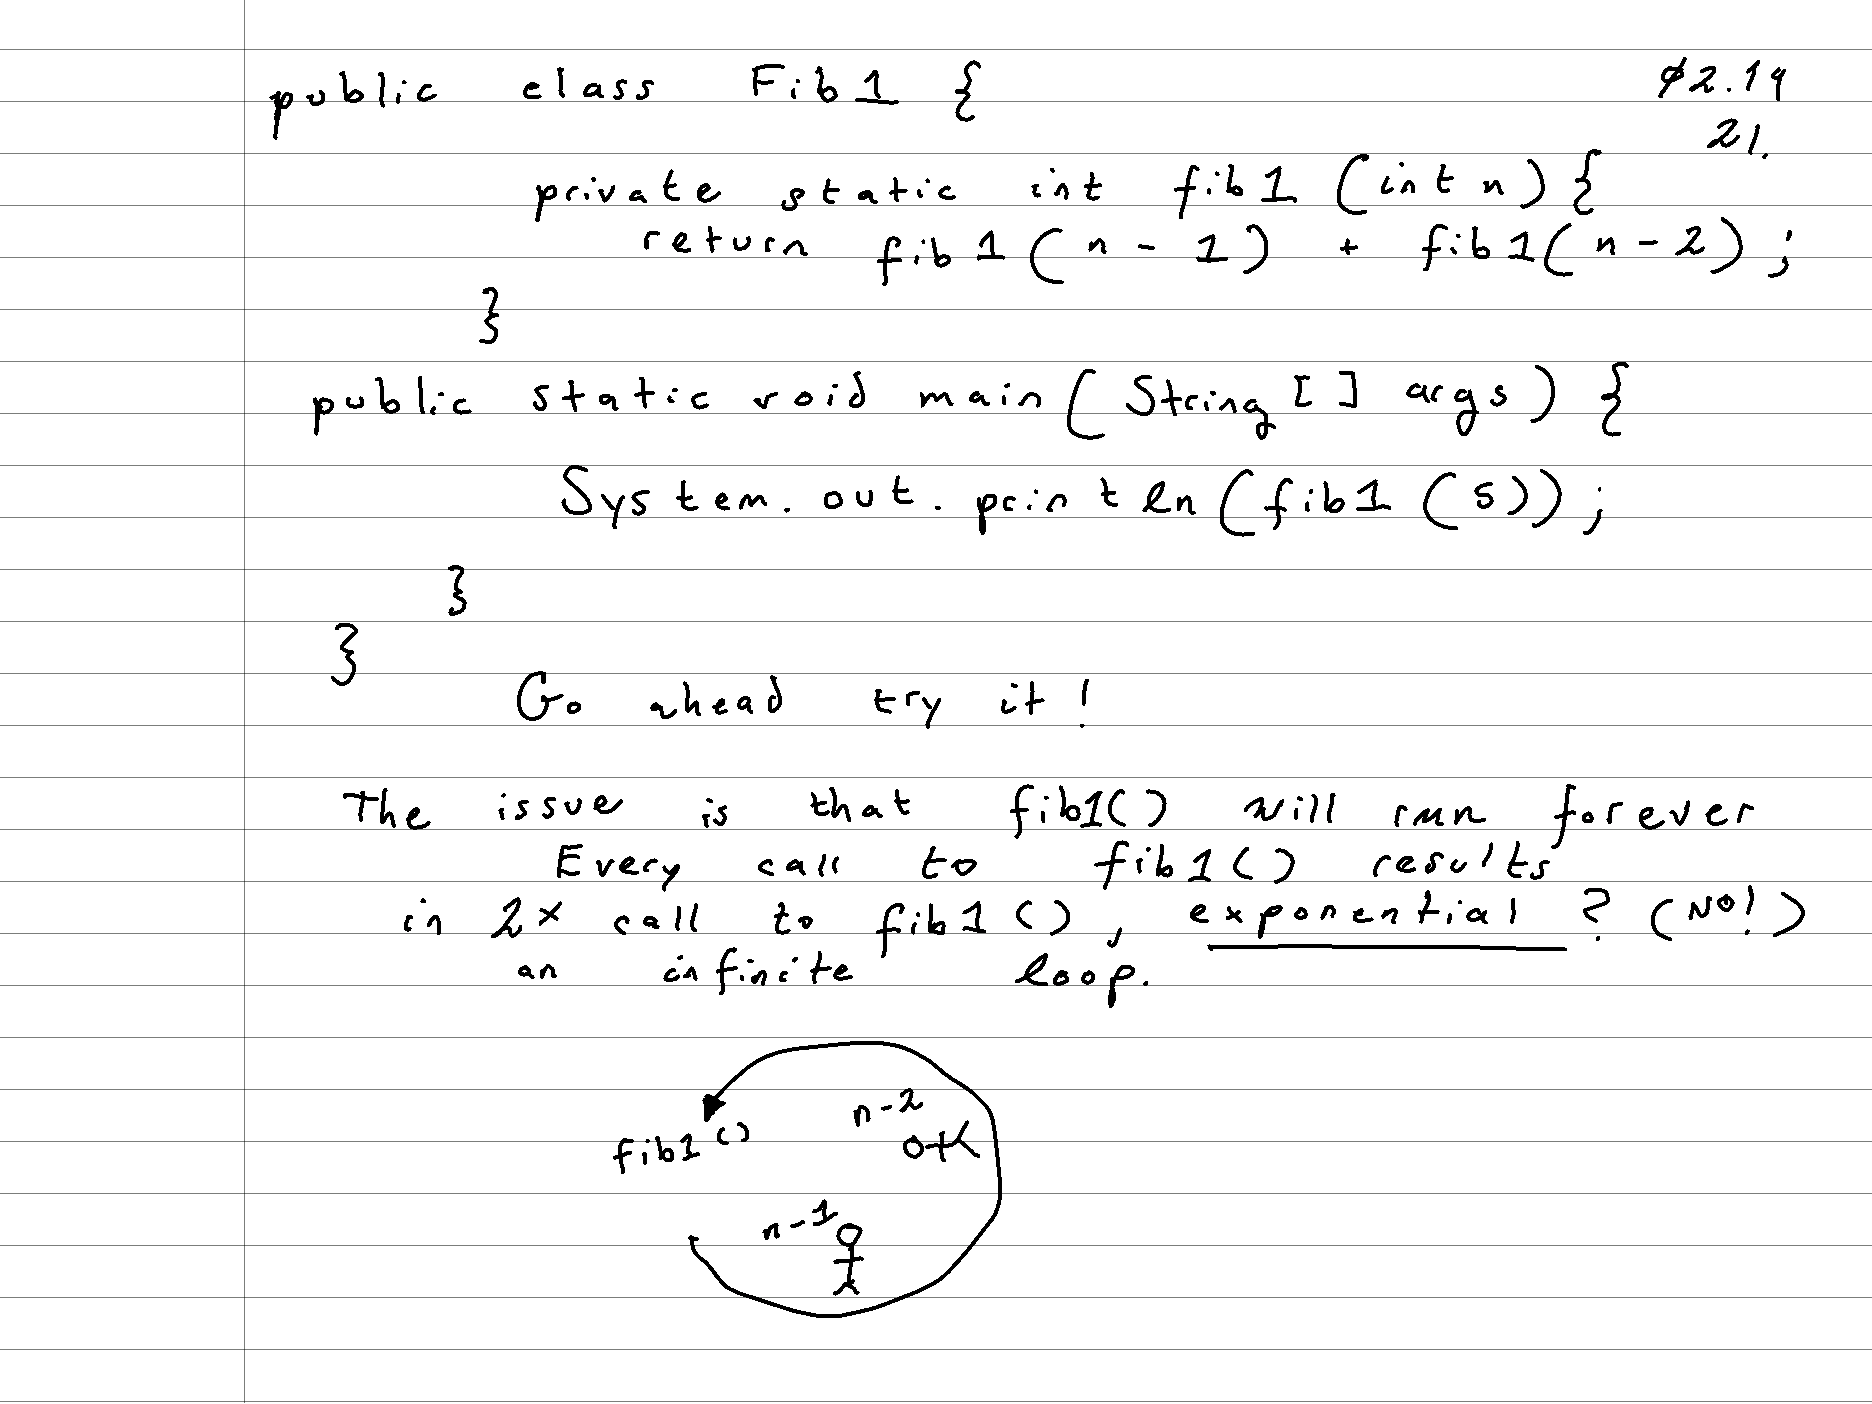 public class Fib1 { ϕ2.19
21.
private static int fib1 (int n) {
return fib1 (n - 1) + fib1(n - 2) ;
}
public static void main( String [ ] args ) {
System. out. println (fib1 (5)) ;
}
}
Go ahead try it !
The issue is that fib1() will run forever
Every call to fib1 () results
in 2x call to fib1 () , exponential ? (NO!)
an infinite loop.
n-2
fib1 ()
n-1